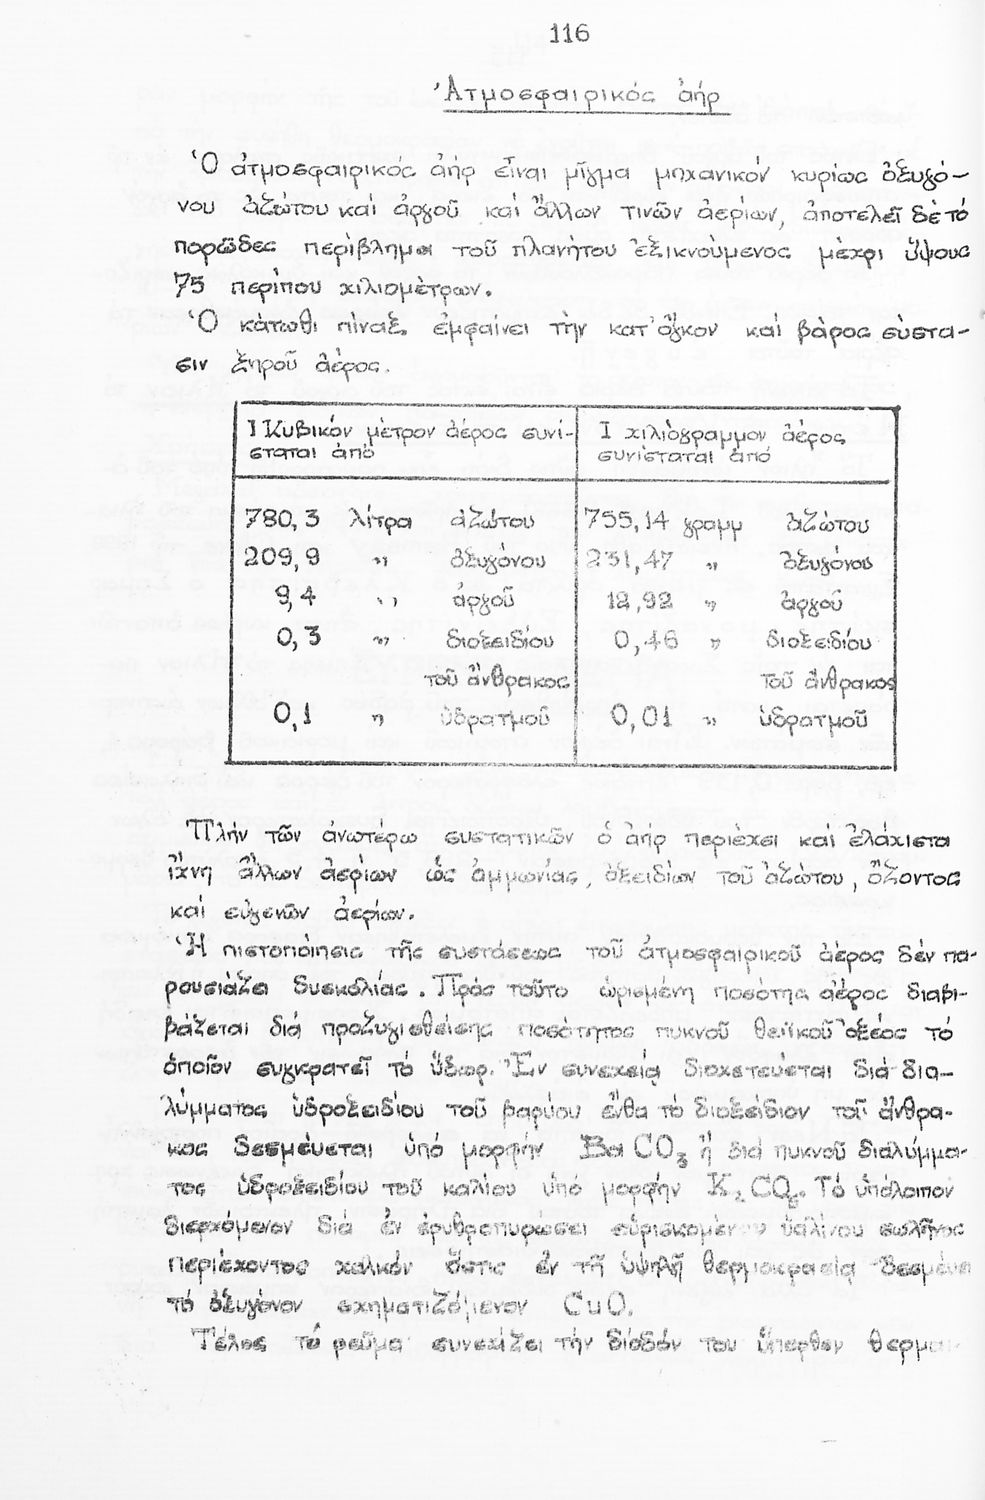 116
Ἀτμοσφαιρικός ἀήρ
Ὁ ἀτμοσφαιρικός ἀήρ εἶναι μῖγμα μηχανικόν κυρίως ὀξυγό-
νου ἀζώτου καί ἀργοῦ καί ἄλλων τινῶν ἀερίων, ἀποτελεῖ δέ τό
πορῶδες περίβλημα τοῦ πλανήτου ἐξικνούμενος μέχρι ὕψους
75 περίπου χιλιομέτρων.
Ὁ κάτωθι πίναξ ἐμφαίνει τήν κατ' ὄγκον καί βάρος σύστα-
σιν ξηροῦ ἀέρος.
1 Κυβικόν μέτρον ἀέρος συνί-
σταται ἀπό
1 χιλιόγραμμον ἀέρος
συνίσταται ἀπό
780,3 λίτρα ἀζώτου 755,14 γραμμ ἀζώτου
209,9 " ὀξυγόνου 231,47 " ὀξυγόνου
9,4 " ἀργοῦ 12,92 " ἀργοῦ
0,3 " διοξειδίου 0,46 " διοξειδίου
τοῦ ἄνθρακος τοῦ ἄνθρακος
0,1 " ὑδρατμοῦ 0,01 " ὑδρατμοῦ
Πλήν τῶν ἀνωτέρω συστατικῶν ὁ ἀήρ περιέχει καί ἐλάχιστα
ἴχνη ἄλλων ἀερίων ὡς ἀμμωνίας, ὀξειδίων τοῦ ἀζώτου, ὄζοντος
καί εὐγενῶν ἀερίων.
Ἡ πιστοποίησις τῆς συστάσεως τοῦ ἀτμοσφαιρικοῦ ἀέρος δέν πα-
ρουσιάζει δυσκολίας. Πρός τοῦτο ὡρισμένη ποσότης ἀέρος διαβι-
βάζεται διά προζυγισθείσης ποσότητος πυκνοῦ θειϊκοῦ ὀξέος τό
ὁποῖον συγκρατεῖ τό ὕδωρ. Ἐν συνεχεία διοχετεύεται διά δια-
λύμματος ὑδροξειδίου τοῦ βαρύου ἔνθα τό διοξείδιον τοῦ ἄνθρα-
κος δεσμεύεται ὑπό μορφήν BaCO3 ἤ διά πυκνοῦ διαλύμμα-
τος ὑδροξειδίου τοῦ καλίου ὑπό μορφήν K2CO3. Τό ὑπόλοιπον
διερχόμενον διά ἐν ἐρυθροπυρώσει εὑρισκομένου ὑαλίνου σωλῆνος
περιέχοντος χαλκόν ὅστις ἐν τῆ ὑψηλῆ θερμοκρασία δεσμεύει
τό ὀξυγόνον σχηματιζόμενον CuO.
Τέλος τό ρεῦμα συνεχίζει τήν δίοδόν του ὕπερθεν θερμα-